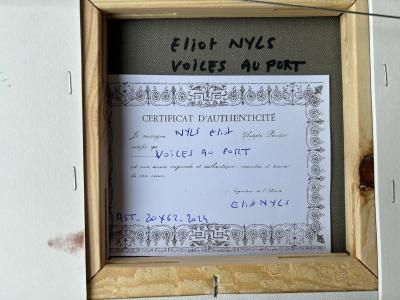 Eliot NYLS
VOILES AU PORT
CERTIFICAT D'AUTHENTICITÉ
Je soussigné NYLS Eliot Sculpteur Peintre
certifie que
VOILES AU PORT
est une œuvre originale et authentique
de ma main.
Signature de l'Artiste
Eliot NYLS
AST- 20X62- 2024